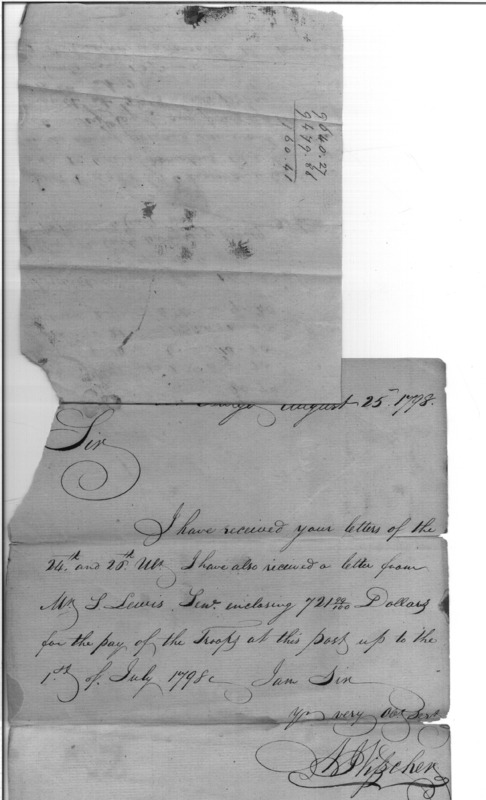 9640.27
9479.86
160.41
August 25th 1798.
Sir
I have received your letters of the
24th and 25th Ulto I have also received a letter from
Mr S Lewis, Senr. inclosing 721 22/100 Dollars
for the pay of the Troops at this post up to the
1st of July 1798 I am Sir
Yr very Obt Servt